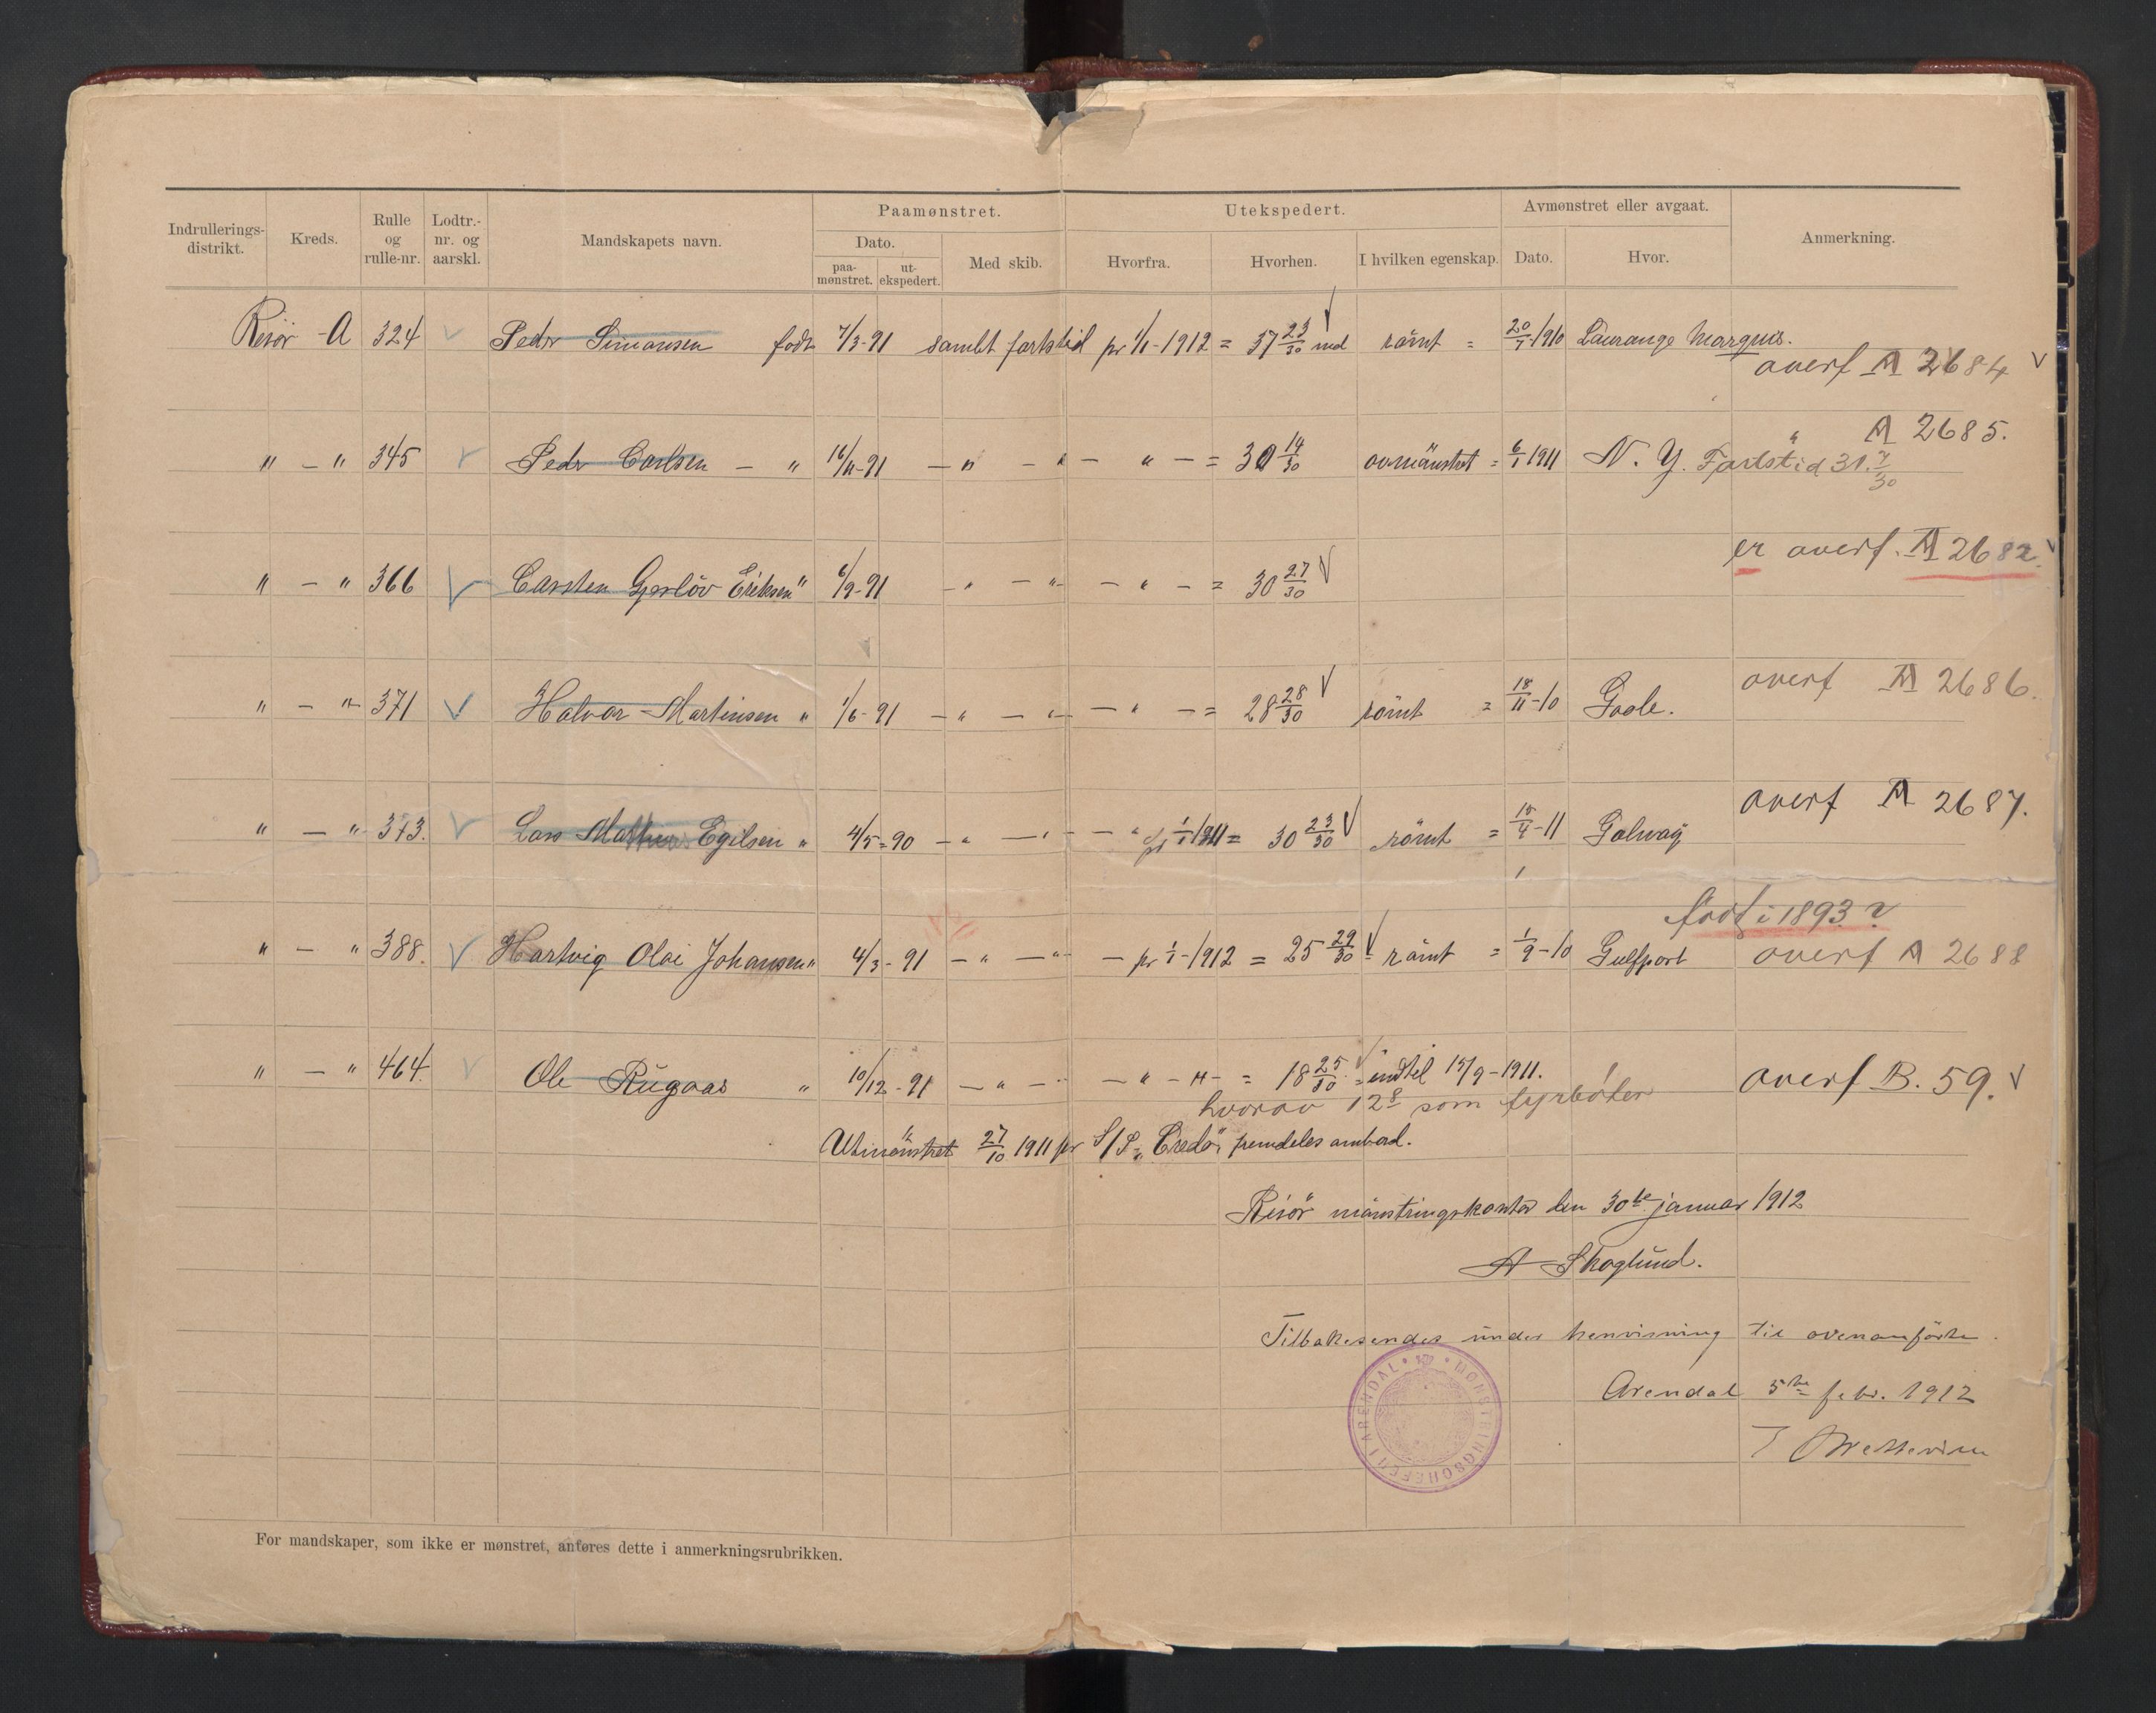 Indrullerings-distrikt. Kreds. Rulle og rulle-nr. Lodtr.-nr. og aarskl. Mandskapets navn. Paamønstret. Dato. paa-mønstret. ut-ekspedert. Med skib. Utekspedert. Hvorfra. Hvorhen. I hvilken egenskap. Avmønstret eller avgaat. Dato. Hvor. Anmerkning.
Risör - A 324 Peder Simonsen født 7/3-91 samlet fartstid pr 1/1-1912 = 37 23/30 md römt = 20/1-1910 Laurange Marquis.
overf A 2684
" A 2685.
" - " 345 Peder Carlsen - " 16/11-91 - " - " - " - = 30 14/30 avmönstret = 6/1 1911 N. Y. Fartstid 31. 7/30
er overf. A 2682.
" - " 366 Carsten Gjerlöv Eriksen " 6/9-91 - " - " - " - = 30 27/30
overf A 2686.
" - " 371 Halvor Martinsen " 1/6-91 - " - " - " - = 28 28/30 römt = 18/11-10 Goole.
overf A 2687.
" - " 373. Lars Mathias Egilsen " 4/5-90 - " - " - " pr 1/1 1911 = 30 23/30 römt = 15/4-11 Galway
født i 1893?
" - " 388. Hartvig Olai Johansen " 4/3-91 - " - " - pr 1/1-1912 = 25 29/30 - römt = 1/9-10 Gulfport overf A 2688
" - " 464. Ole Rugaas " 10/12-91 - " - " - " - " - = 18 25/30 = indtil 15/9-1911. overf B. 59.
hvorav 12 8 som fyrböter
Utmönstret 27/10 1911 pr S/S "Credo", fremdeles ombord.
Risör mönstringskontor den 30te januar 1912
A Skoglund.
Tilbakesendes under henvisning til ovenanförte.
Arendal 5te febr. 1912
MØNSTRINGSCHEFEN I ARENDAL
For mandskaper, som ikke er mønstret, anføres dette i anmerkningsrubrikken.